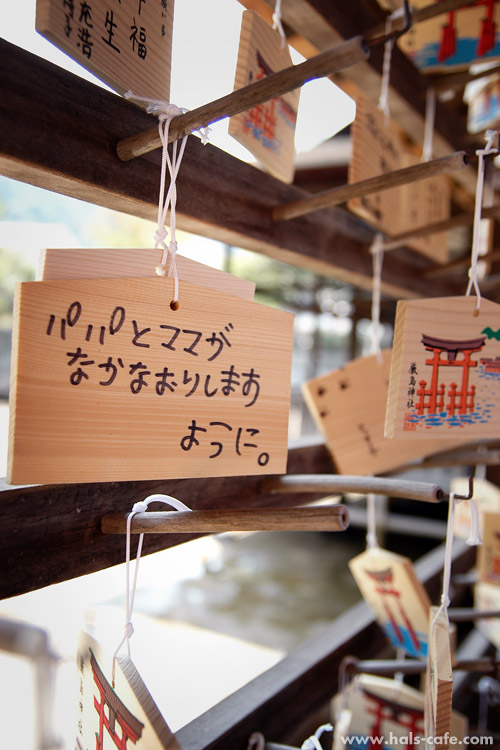 幸福
パパとママが
なかなおりします
ように。
厳島神社
www.hals-cafe.com